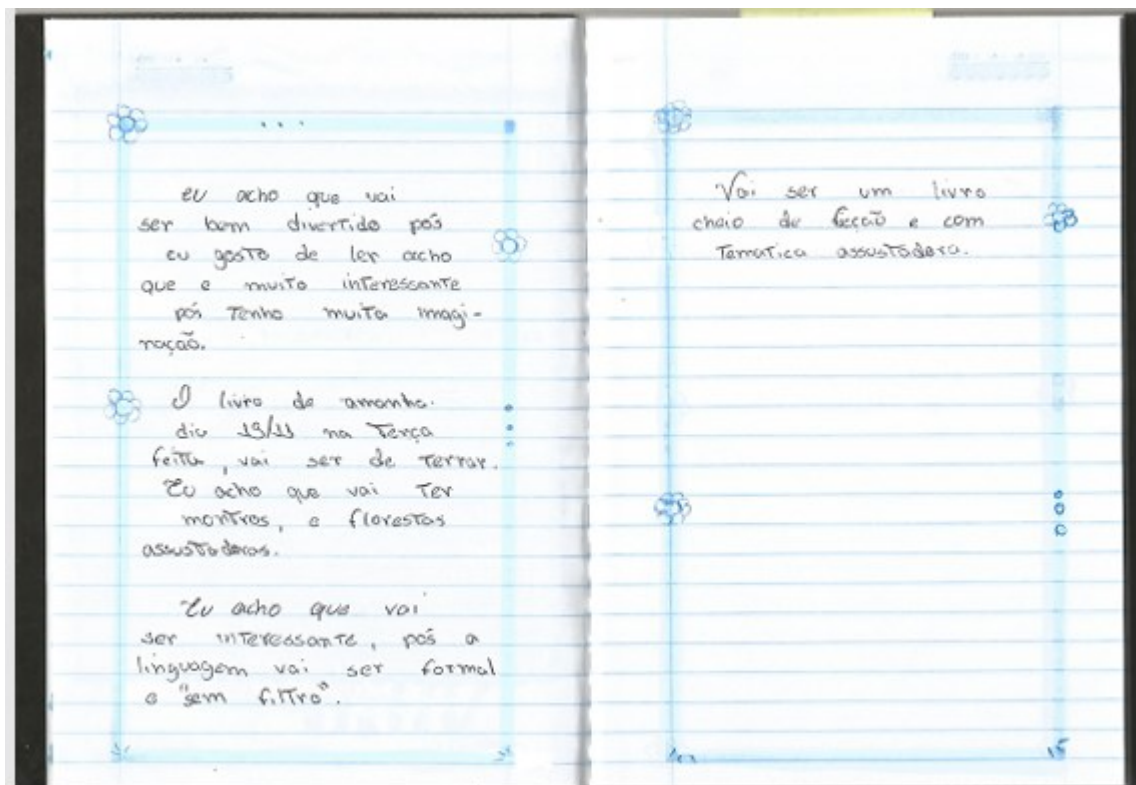 eu acho que vai
ser bem divertido pós
eu gosto de ler acho
que e muito interessante
pós Tenho muita imagi-
nação.
O livro de amanha.
dia 19/11 na Terça
feita, vai ser de terror.
Eu acho que vai Ter
montros, e florestas
assustadoras.
Eu acho que vai
ser interessante, pós a
linguagem vai ser formal
e "sem filtro".
Vai ser um livro
cheio de ficção e com
Tematica assustadora.